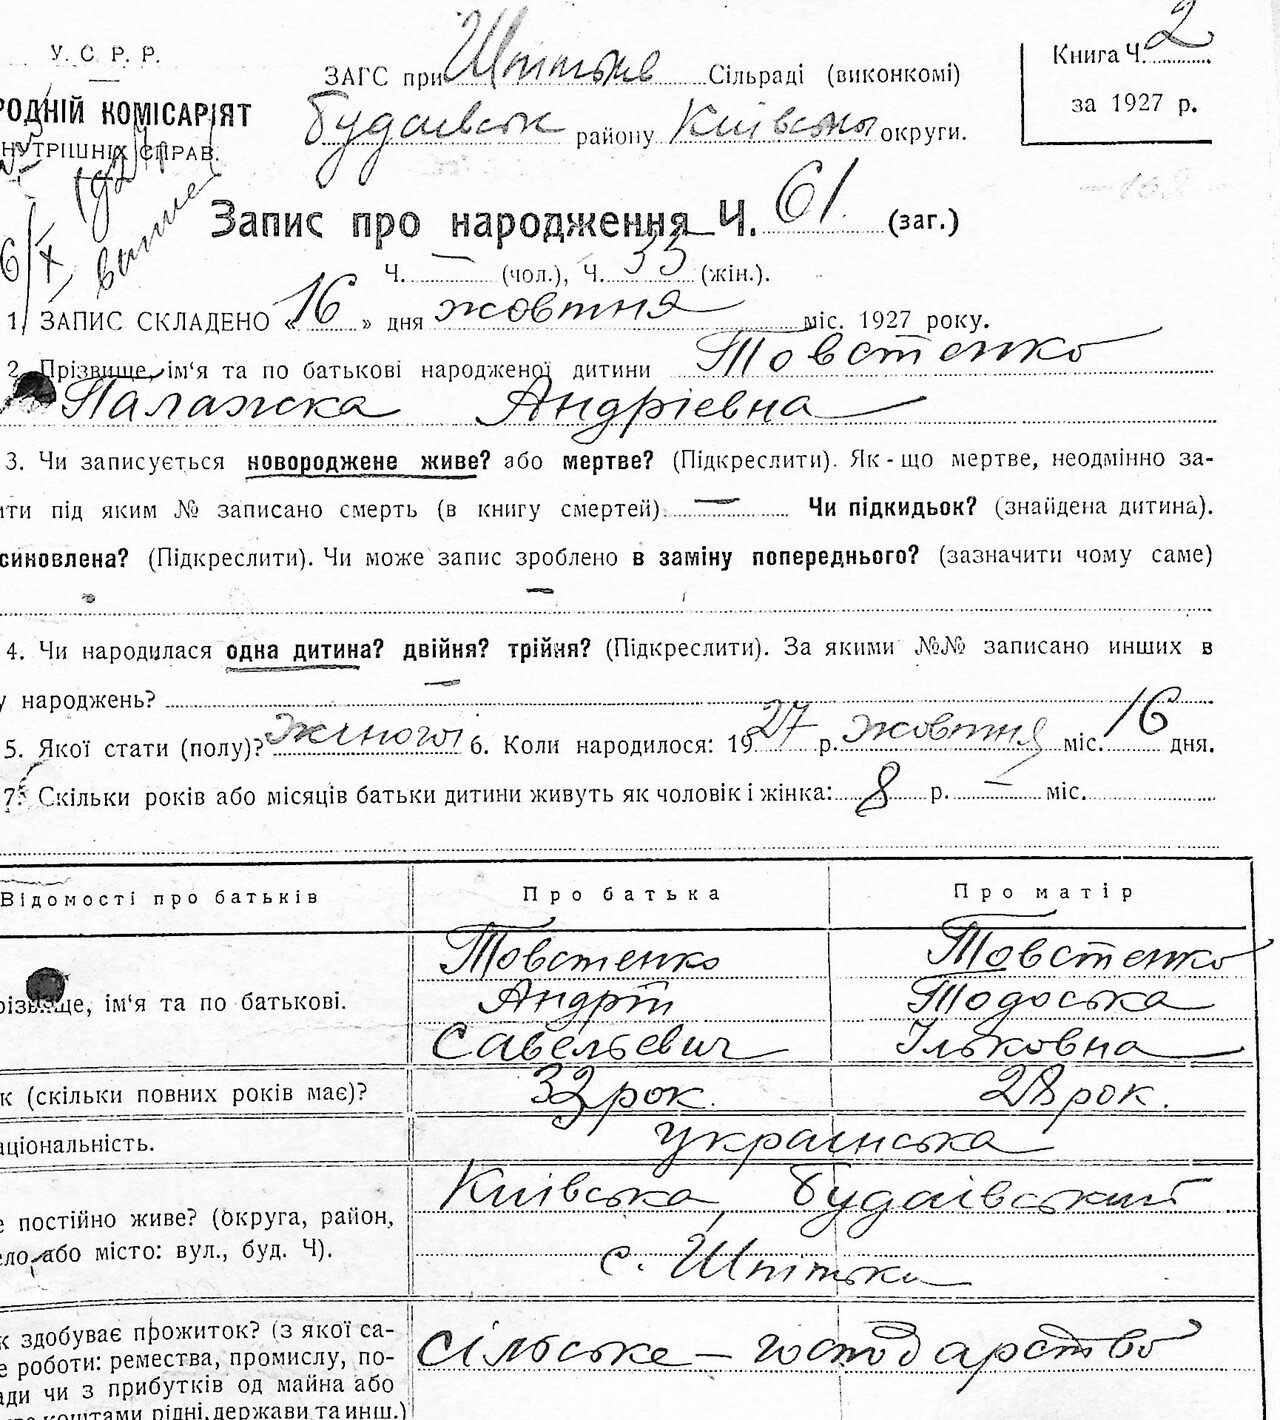 У. С. Р. Р.
ЗАГС при Шпітьків Сільраді (виконкомі)
Книга Ч. 2
РОДНІЙ КОМІСАРІЯТ
Будаївськ району Київськ округи.
за 1927 р.
НУТРІШНІХ СПРАВ.
Запис про народження Ч. 61 (заг.)
Ч. — (чол.), Ч. 35 (жін.).
1. ЗАПИС СКЛАДЕНО «16» дня жовтня міс. 1927 року.
2. Прізвище, ім'я та по батькові народженої дитини Товстенко
Палажка Андріевна
3. Чи записується новороджене живе? або мертве? (Підкреслити). Як-що мертве, неодмінно за-
ити під яким № записано смерть (в книгу смертей). — Чи підкидьок? (знайдена дитина).
синовлена? (Підкреслити). Чи може запис зроблено в заміну попереднього? (зазначити чому саме)
—
4. Чи народилася одна дитина? двійня? трійня? (Підкреслити). За якими №№ записано инших в
у народжень? —
5. Якої стати (полу)? жіночої 6. Коли народилося: 1927 р. жовтня міс. 16 дня.
7. Скільки років або місяців батьки дитини живуть як чоловік і жінка: 8 р. — міс.
Відомості про батьків Про батька Про матір
Товстенко Товстенко
різвище, ім'я та по батькові. Андрій Тодоська
Савельевич Ільковна
к (скільки повних років має)? 32 рок. 28 рок.
аціональність. українська
Київська, Будаівський
е постійно живе? (округа, район,
ело або місто: вул., буд. Ч). с. Шпітьки
к здобуває прожиток? (з якої са- сільське – господарство
е роботи: ремества, промислу, по-
ади чи з прибутків од майна або
коштами рідні, держави та инш.)